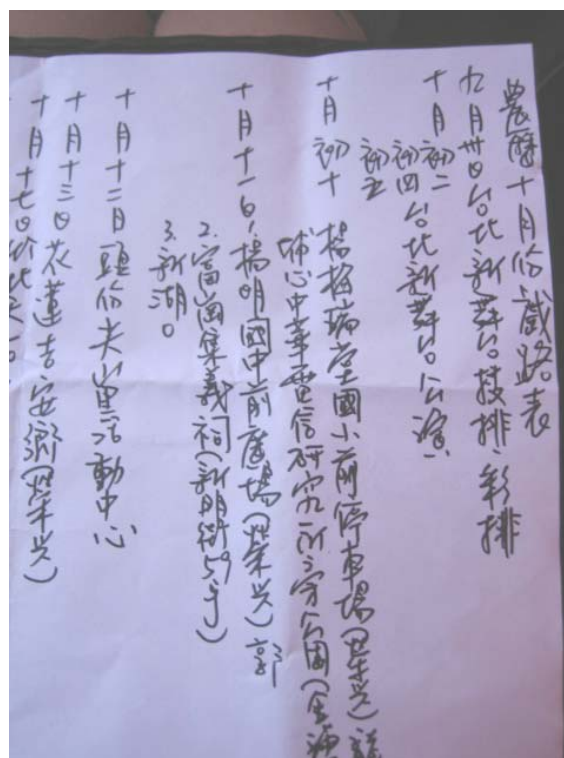 農曆十月份戲路表
九月卅日台北新舞台技排、彩排
十月初二
初四台北新舞台公演
初五
十月初十楊梅瑞塘國小前停車場(榮興)
埔心中華電信研究所三字公園(金
十月十一日1.楊明國中前廣場(榮興)郭
2.富岡集義祠(新明街59号)
3.新湖。
十月十二日頭份尖山里活動中心
十月十三日花蓮吉安鄉(榮興)
十月十七日